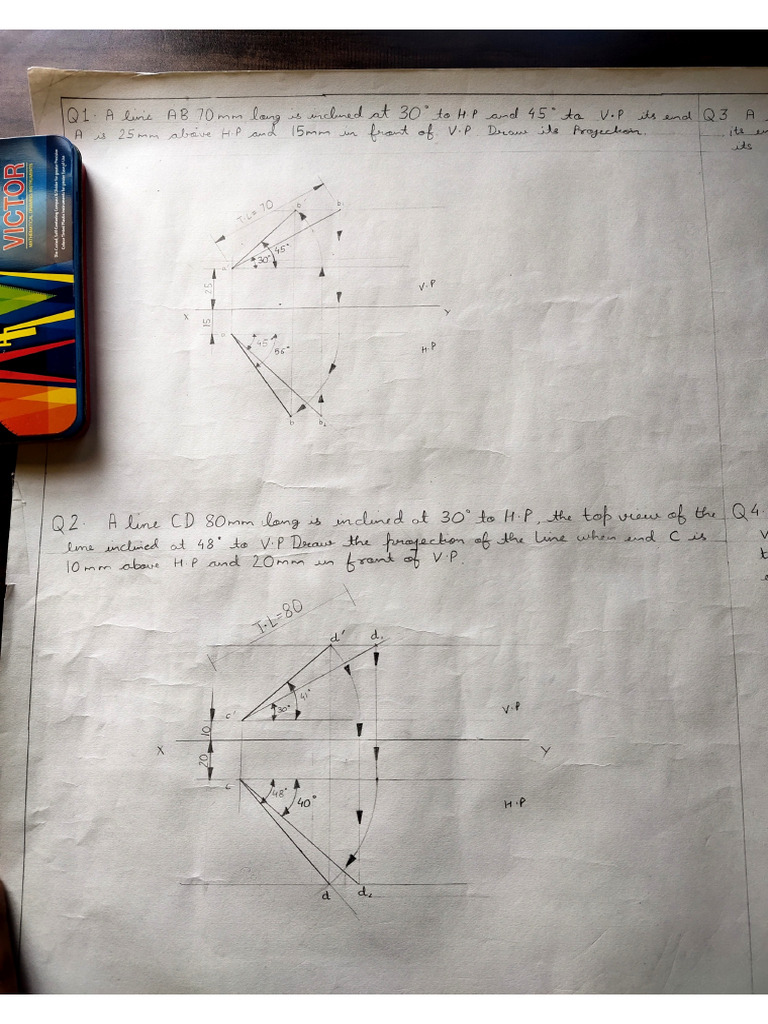 Q1. A line AB 70mm long is inclined at 30° to H.P and 45° to V.P its end
A is 25mm above H.P and 15mm in front of V.P. Draw its Projection.
Q3 A
its
its
VICTOR
MATHEMATICAL DRAWING INSTRUMENTS
T.L=70
b'
b₁
45°
30°
a'
25
V.P
X
Y
15
a
45°
56°
H.P
b
b₂
Q2. A line CD 80mm long is inclined at 30° to H.P, the top view of the
line inclined at 48° to V.P Draw the projection of the line when end C is
10mm above H.P and 20mm in front of V.P.
Q4.
T.L=80
d'
d₁
41°
30°
c'
V.P
10
X
Y
20
c
48°
40°
H.P
d
d₂